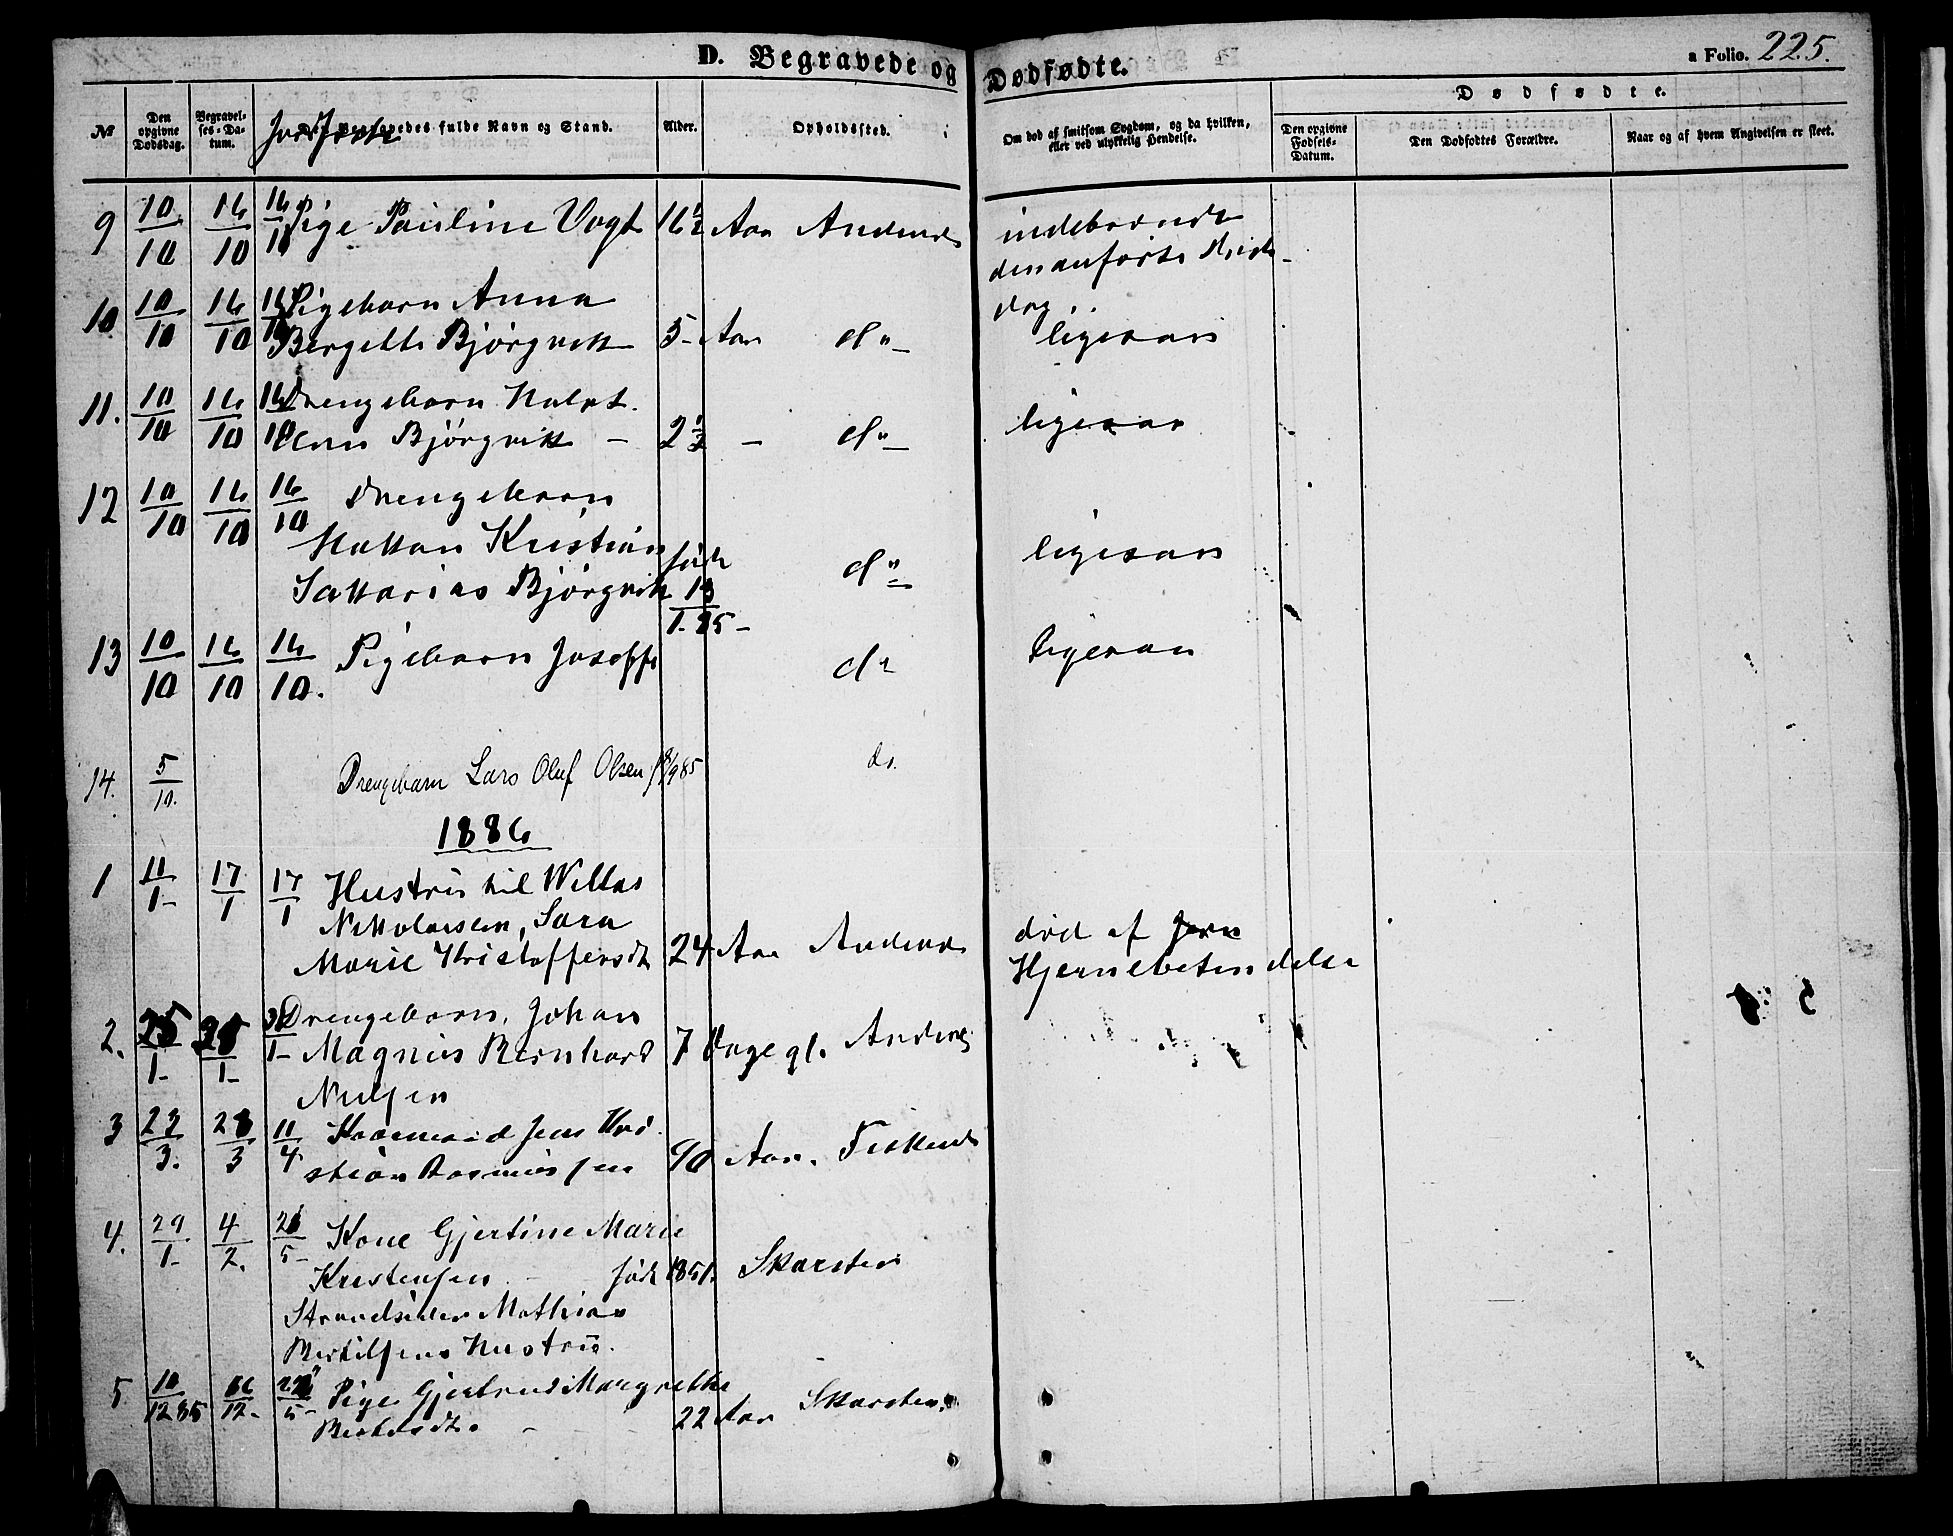 D. Begravede og Dødfødte.
a Folio. 225.
Dødfødte.
No
Den opgivne Dødsdag.
Begravelses-Datum.
Jordfæste
Den Begravedes fulde Navn og Stand.
Alder.
Opholdssted.
Om død af smitsom Sygdom, og da hvilken, eller ved ulykkelig Hendelse.
Den opgivne Fødsels-Datum.
Den Dødfødtes Forældre.
Naar og af hvem Angivelsen er skeet.
9 10/10 16/10 16/10 Pige Pauline Vogt 16 1/2 Aar Andenes indebrændt
den anførte Døds
dag.
10 10/10 16/10 16/10 Pigebarn Anna
Bergette Bjørgvik 5- Aar do ligesaa
11. 10/10 16/10 16/10 Drengebarn Halvt.
Bjørgvik - 2 1/2 - do ligesaa
12 10/10 16/10 16/10 Drengebarn
Hakkon Kristian
Sakkarias Bjørgvik født 13/1-85- do ligesaa
13 10/10 16/10 16/10. Pigebarn Joseffe do ligesaa
14. 5/10. Drengebarn Lars Oluf Olsen f. 8/9 85 do.
1886
1 11/1- 17/1 17/1 Hustru til Niklas
Nikkolaisen, Sara
Marie Kristoffersdt 24 Aar Andenes død af
Hjernebetendelse
2. 25/1- 28/1- 31/1- Drengebarn, Johan
Magnus Bernhard 7 Dage gl. Andenes
Nielsen
3 23/3. 28/3 11/4 Kaarmand Jens Kri
stian Rasmussen 90 Aar. Fiskenes
4. 29/1- 4/2. 21/5- Kone Gjertine Marie
Kristensen - født 1851. Skarsten
Strandsider Mathias
Bertilsens Hustru.
5 10/12 85 16/12- 22/5- Pige Gjertrud Margrethe
22 Aar Skarsten